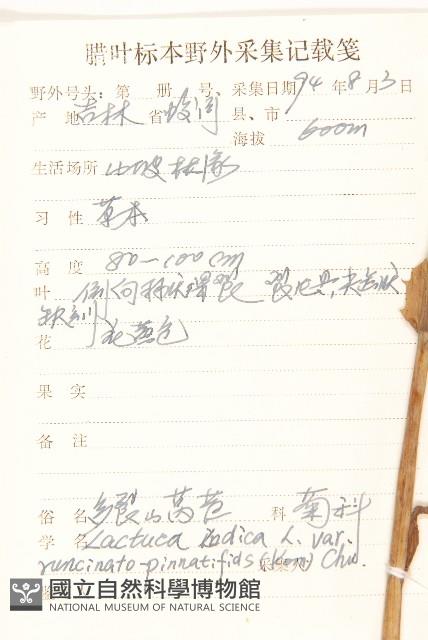 腊叶标本野外采集记载笺
野外号头：第 册 号 采集日期 94 年 8 月 3 日
产 地 吉林 省 县、市
海拔 600m
生活场所 山坡林缘
习 性 草本
高 度 80—100 cm
叶 倒向
缺刻
花
果 实
备 注
俗 名 裂山莴苣 科 菊科
学 名 Lactuca indica L. var.
runcinato-pinnatifida (Kom) Chu.
國立自然科學博物館
NATIONAL MUSEUM OF NATURAL SCIENCE